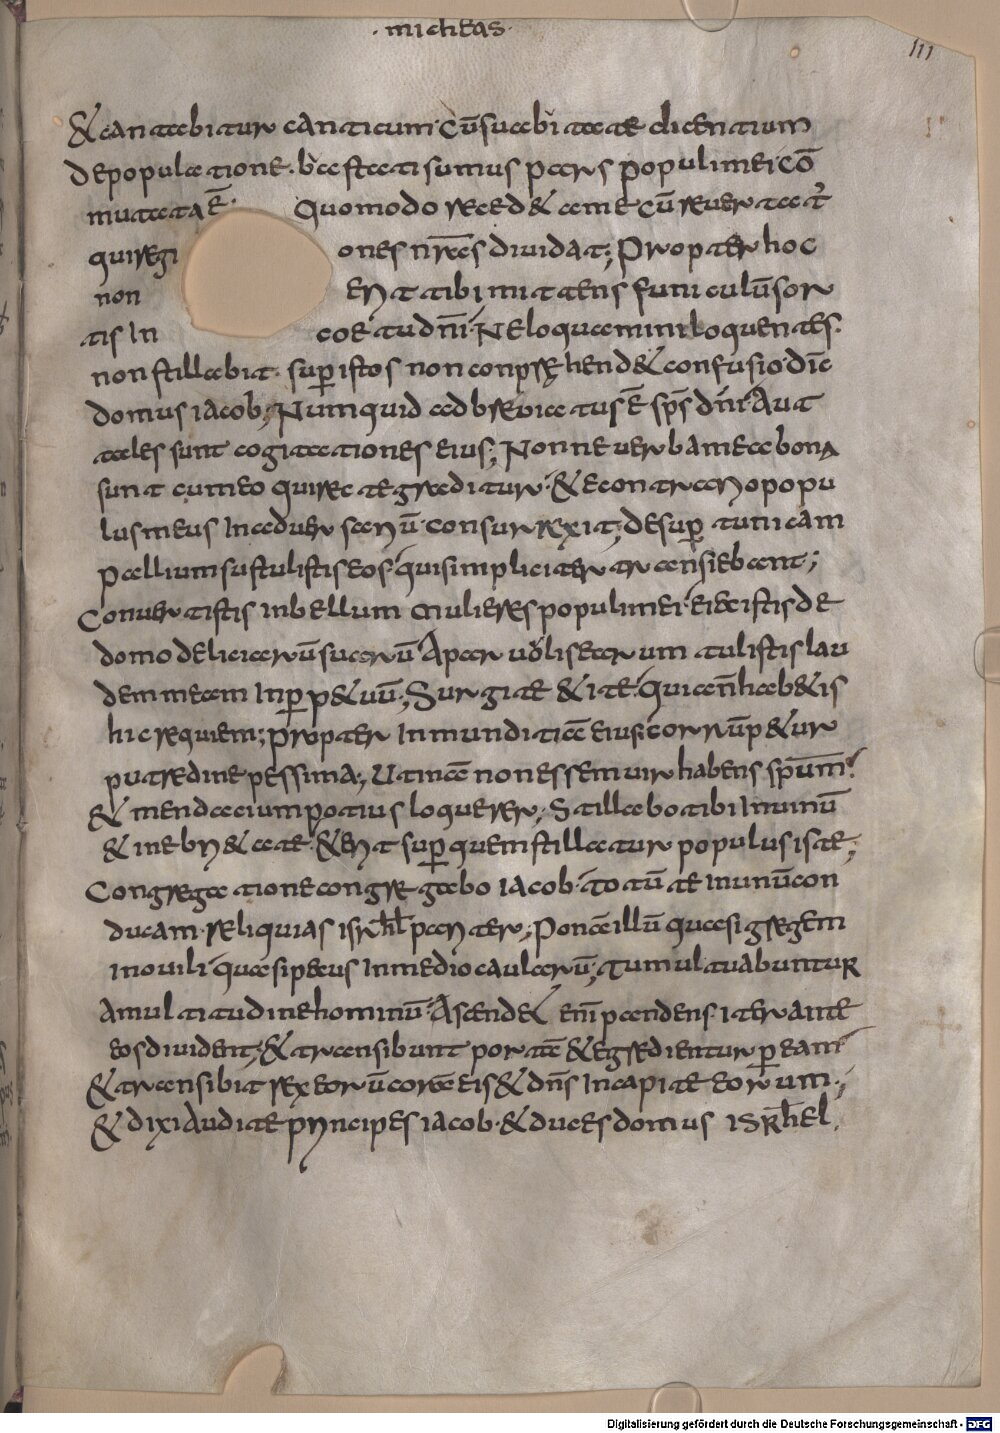 · micheas ·
III
& cantabitur canticum cū suabitate dicentium
depopulatione · bastati sumus pars populi mei cō
mutata ē · Quomodo reced& a me cū revertat᷑
qui regi ones nr̄as dividat; Propter hoc
non erit tibi mittens funiculū sor
tis In coetu dn̄i · Ne loquamini loquentes ·
non stillabit · sup̱ istos non conprehend& confusio · dīc
domus iacob; Numquid adbreviatus ē sp̄s dn̄i · Aut
tales sunt cogitationes eius; Nonne verba mea bona
sunt cum eo qui recte graditur · & e contrario popu
lus meus In adversariū consurrexit; desup̱ tunicam
pallium sustulistis eos qui simpliciter transiebant;
Convertistis In bellum mulieres populi mei eiecistis de
domo deliciarū suarū A parvolis earum tulistis lau
dem meam In p̱p&uū; Surgite & ite · Qui a n̄ hab&is
hic requiem; propter Inmunditiā eius · corrūp&ur
putredine pessima; Utinā non essem vir habens sp̄um ·
& mendacium potius loquerer; Stillabo tibi In vinū
& in ebri&ate · & erit sup̱ quem stillatur populus iste;
Congregatione congregabo Iacob · totū te In unū con
ducam · reliquias isrl̄ pariter; Ponā illū quasi gregem
in ovili quasi pecus In medio caularū; Tumultuabuntur
A multitudine hominū · Ascend& enī pandens iter ante
eos divident; & transibunt portā & egredientur p̱ eam
& transibit rex eorū corā eis & dn̄s In capite eorum ·;
& dixi Audite principes iacob · & duces domus isrāhel ·
Digitalisierung gefördert durch die Deutsche Forschungsgemeinschaft - DFG